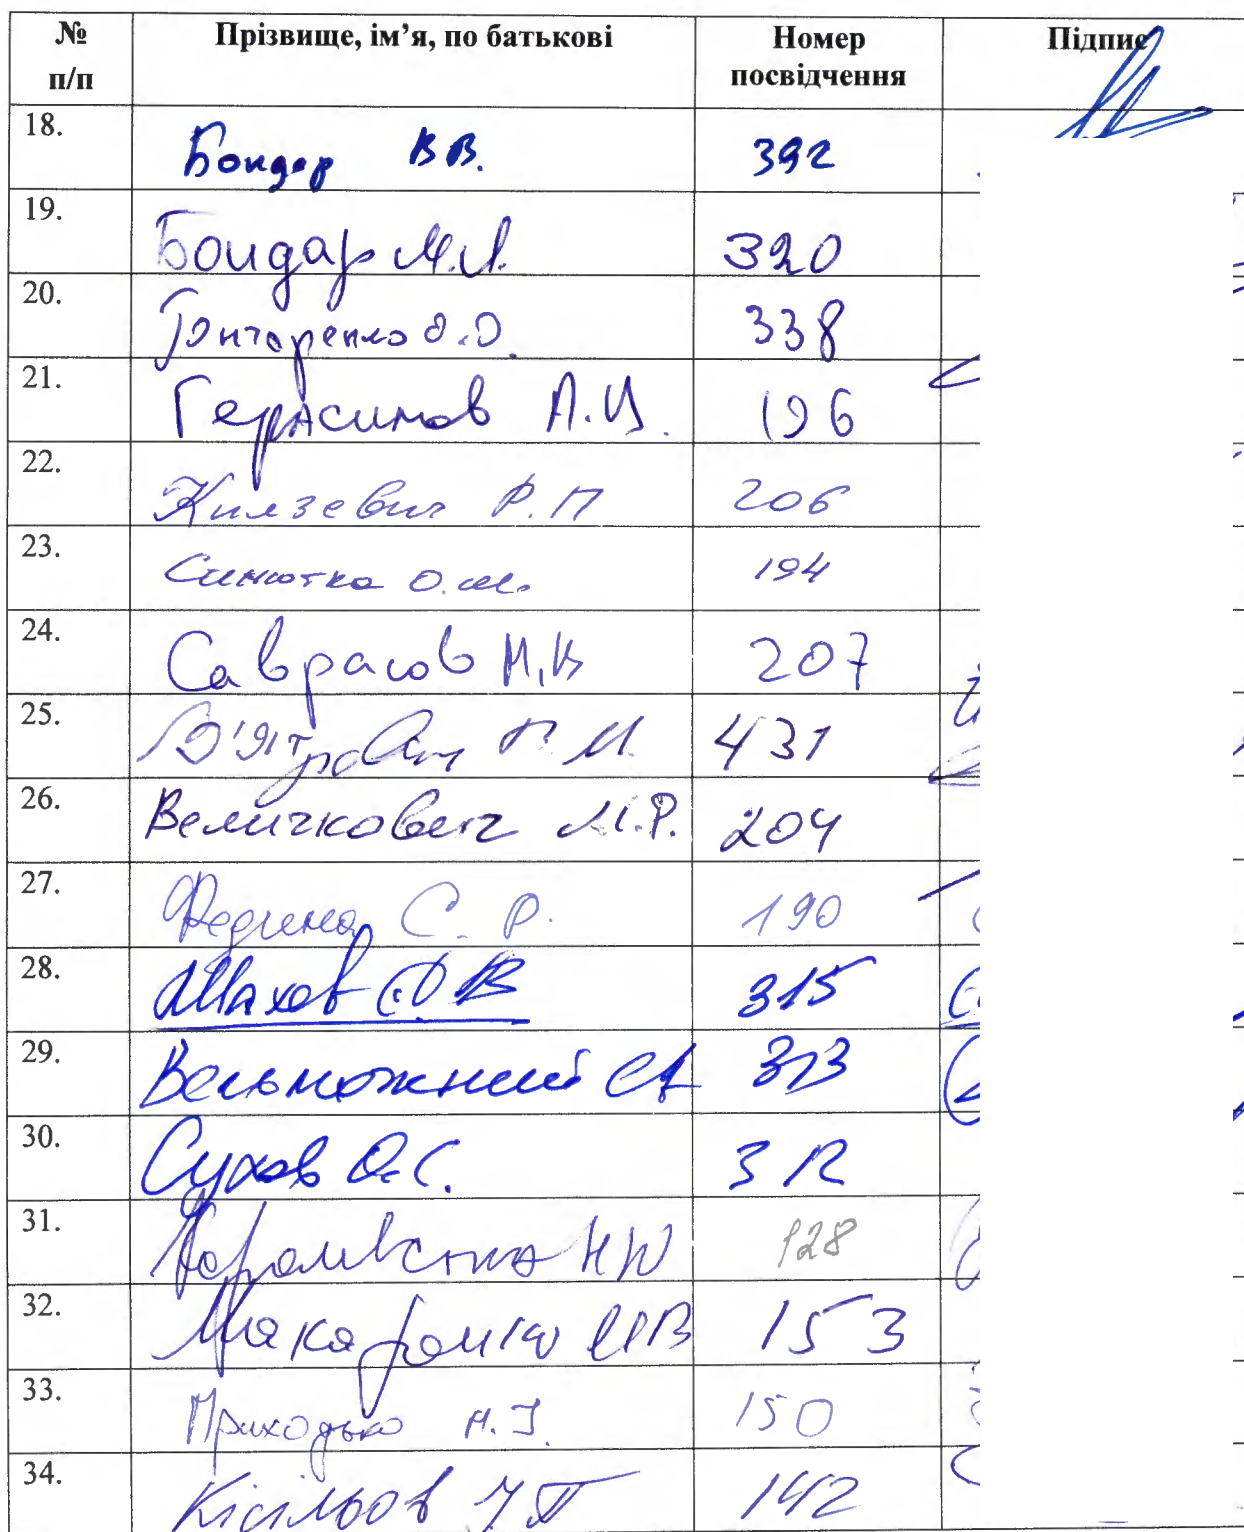 № п/п Прізвище, ім’я, по батькові Номер посвідчення Підпис
18. Бондар В В. 392
19. Бондар М.Л. 320
20. Гончаренко О.О. 338
21. Герасимов А.И. 196
22. Князевич Р.П 206
23. Синютка О.М. 194
24. Саврасов М.В 207
25. В'ятрович В.М. 431
26. Величкович М.Р. 204
27. Федина С. Р. 190
28. Шахов С.В 315
29. Вельможний СА 313
30. Сухов О.С. 312
31. НЮ 128
32. 153
33. Приходько Н.І. 150
34. Кісільов ІП 142